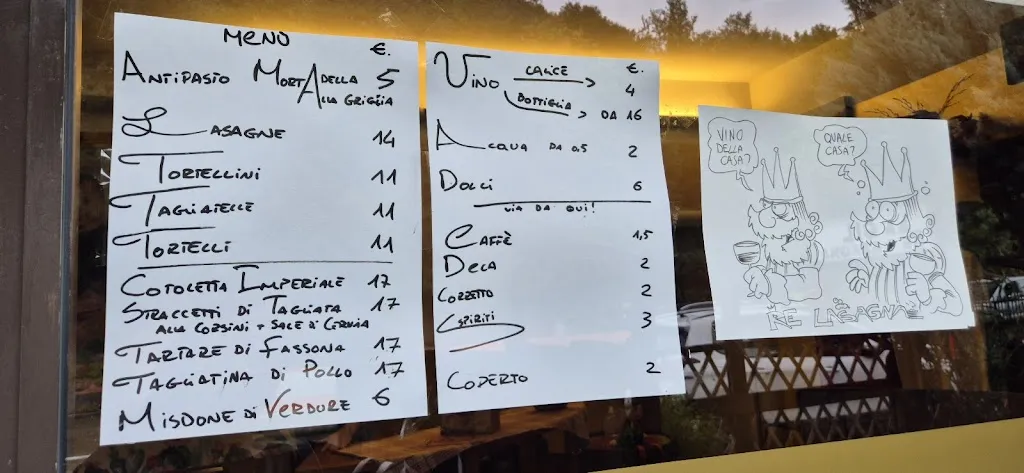 MENÙ €.
ANTIPASTO MORTADELLA 5
ALLA GRIGLIA
LASAGNE 14
TORTELLINI 11
TAGLIATELLE 11
TORTELLI 11
COTOLETTA IMPERIALE 17
STRACCETTI DI TAGLIATA 17
ALLA CORSINI + SALE DI CERVIA
TARTARE DI FASSONA 17
TAGLIATINA DI POLLO 17
MISDONE DI VERDURE 6
VINO CALICE €. 4
BOTTIGLIA DA 16
ACQUA DA 0,5 2
DOLCI 6
VIA DA QUI!
CAFFÈ 1,5
DECA 2
CORRETTO 2
SPIRITI 3
COPERTO 2
VINO DELLA CASA?
QUALE CASA?
RE LASAGNA